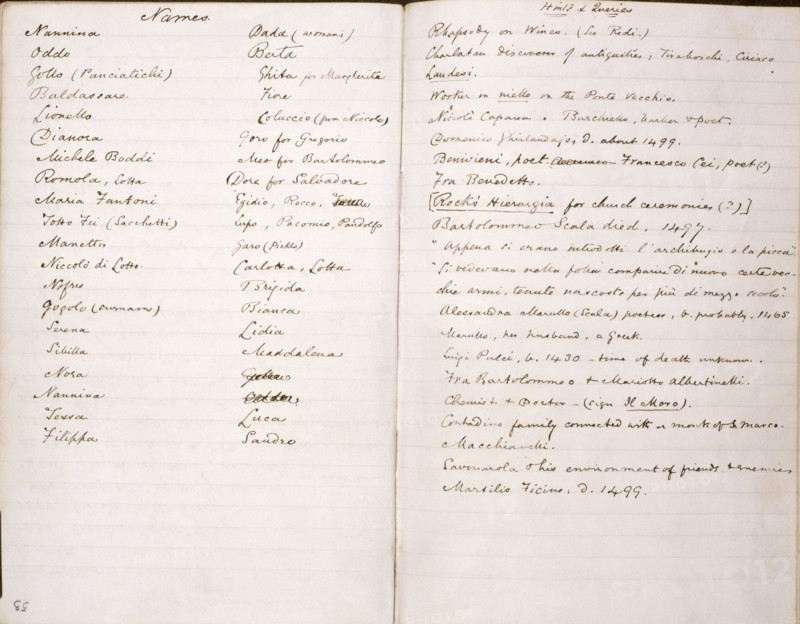 Names.
Nannina
Oddo
Gollo (Panciatichi)
Baldassare
Lionello
Dianora
Michele Boddi
Romola, Lotta
Maria Fantoni
Totto Tii (Sacchetti)
Manetto
Niccolò di Lotto.
Nofri
Gogolo (surname)
Serena
Sibilla
Nora
Nannina
Tessa
Filippa
53
Dada (woman's)
Berta
Ghita for Margherita
Fiore
Coluccio (from Niccolo)
Goro for Gregorio
Meo for Bartolommeo
Dore for Salvadore
Egidio, Rocco,
Lupo, Pacomio, Pandolfo
Garo (Pickle)
Carlotta, Lotta
Brigida
Bianca
Lidia
Maddalena
Luca
Sandro
Hints & Queries
Rhapsody on Wines. (See Redi.)
Charlatan discoverer of antiquities, Tiraboschi, Ciriaco.
Laudesi.
Worker in niello on the Ponte Vecchio.
Niccolò Caparra. Burchiello, barber & poet.
Domenico Ghirlandajo, d. about 1499.
Benivieni, poet Francesco Cei, poet (?)
Fra Benedetto.
[Rock's Hierurgia for church ceremonies (?)]
Bartolommeo Scala died, 1497.
"Appena si erano introdotti l'archibugio e la picca"
"Si vedevano nella folla comparire di nuovo certe vec-
chie armi, tenute nascoste per più di mezzo secolo".
Alessandra Marullo (Scala) poetess, b. probably, 1465
Marullo, her husband, a Greek.
Luigi Pulci, b. 1430 – time of death unknown.
Fra Bartolommeo & Mariotto Albertinelli.
Chemist & Doctor – (sign Il Moro).
Contadino family connected with a monk of S. Marco.
Macchiavelli.
Savonarola & his environment of friends & enemies
Marsilio Ficino, d. 1499.